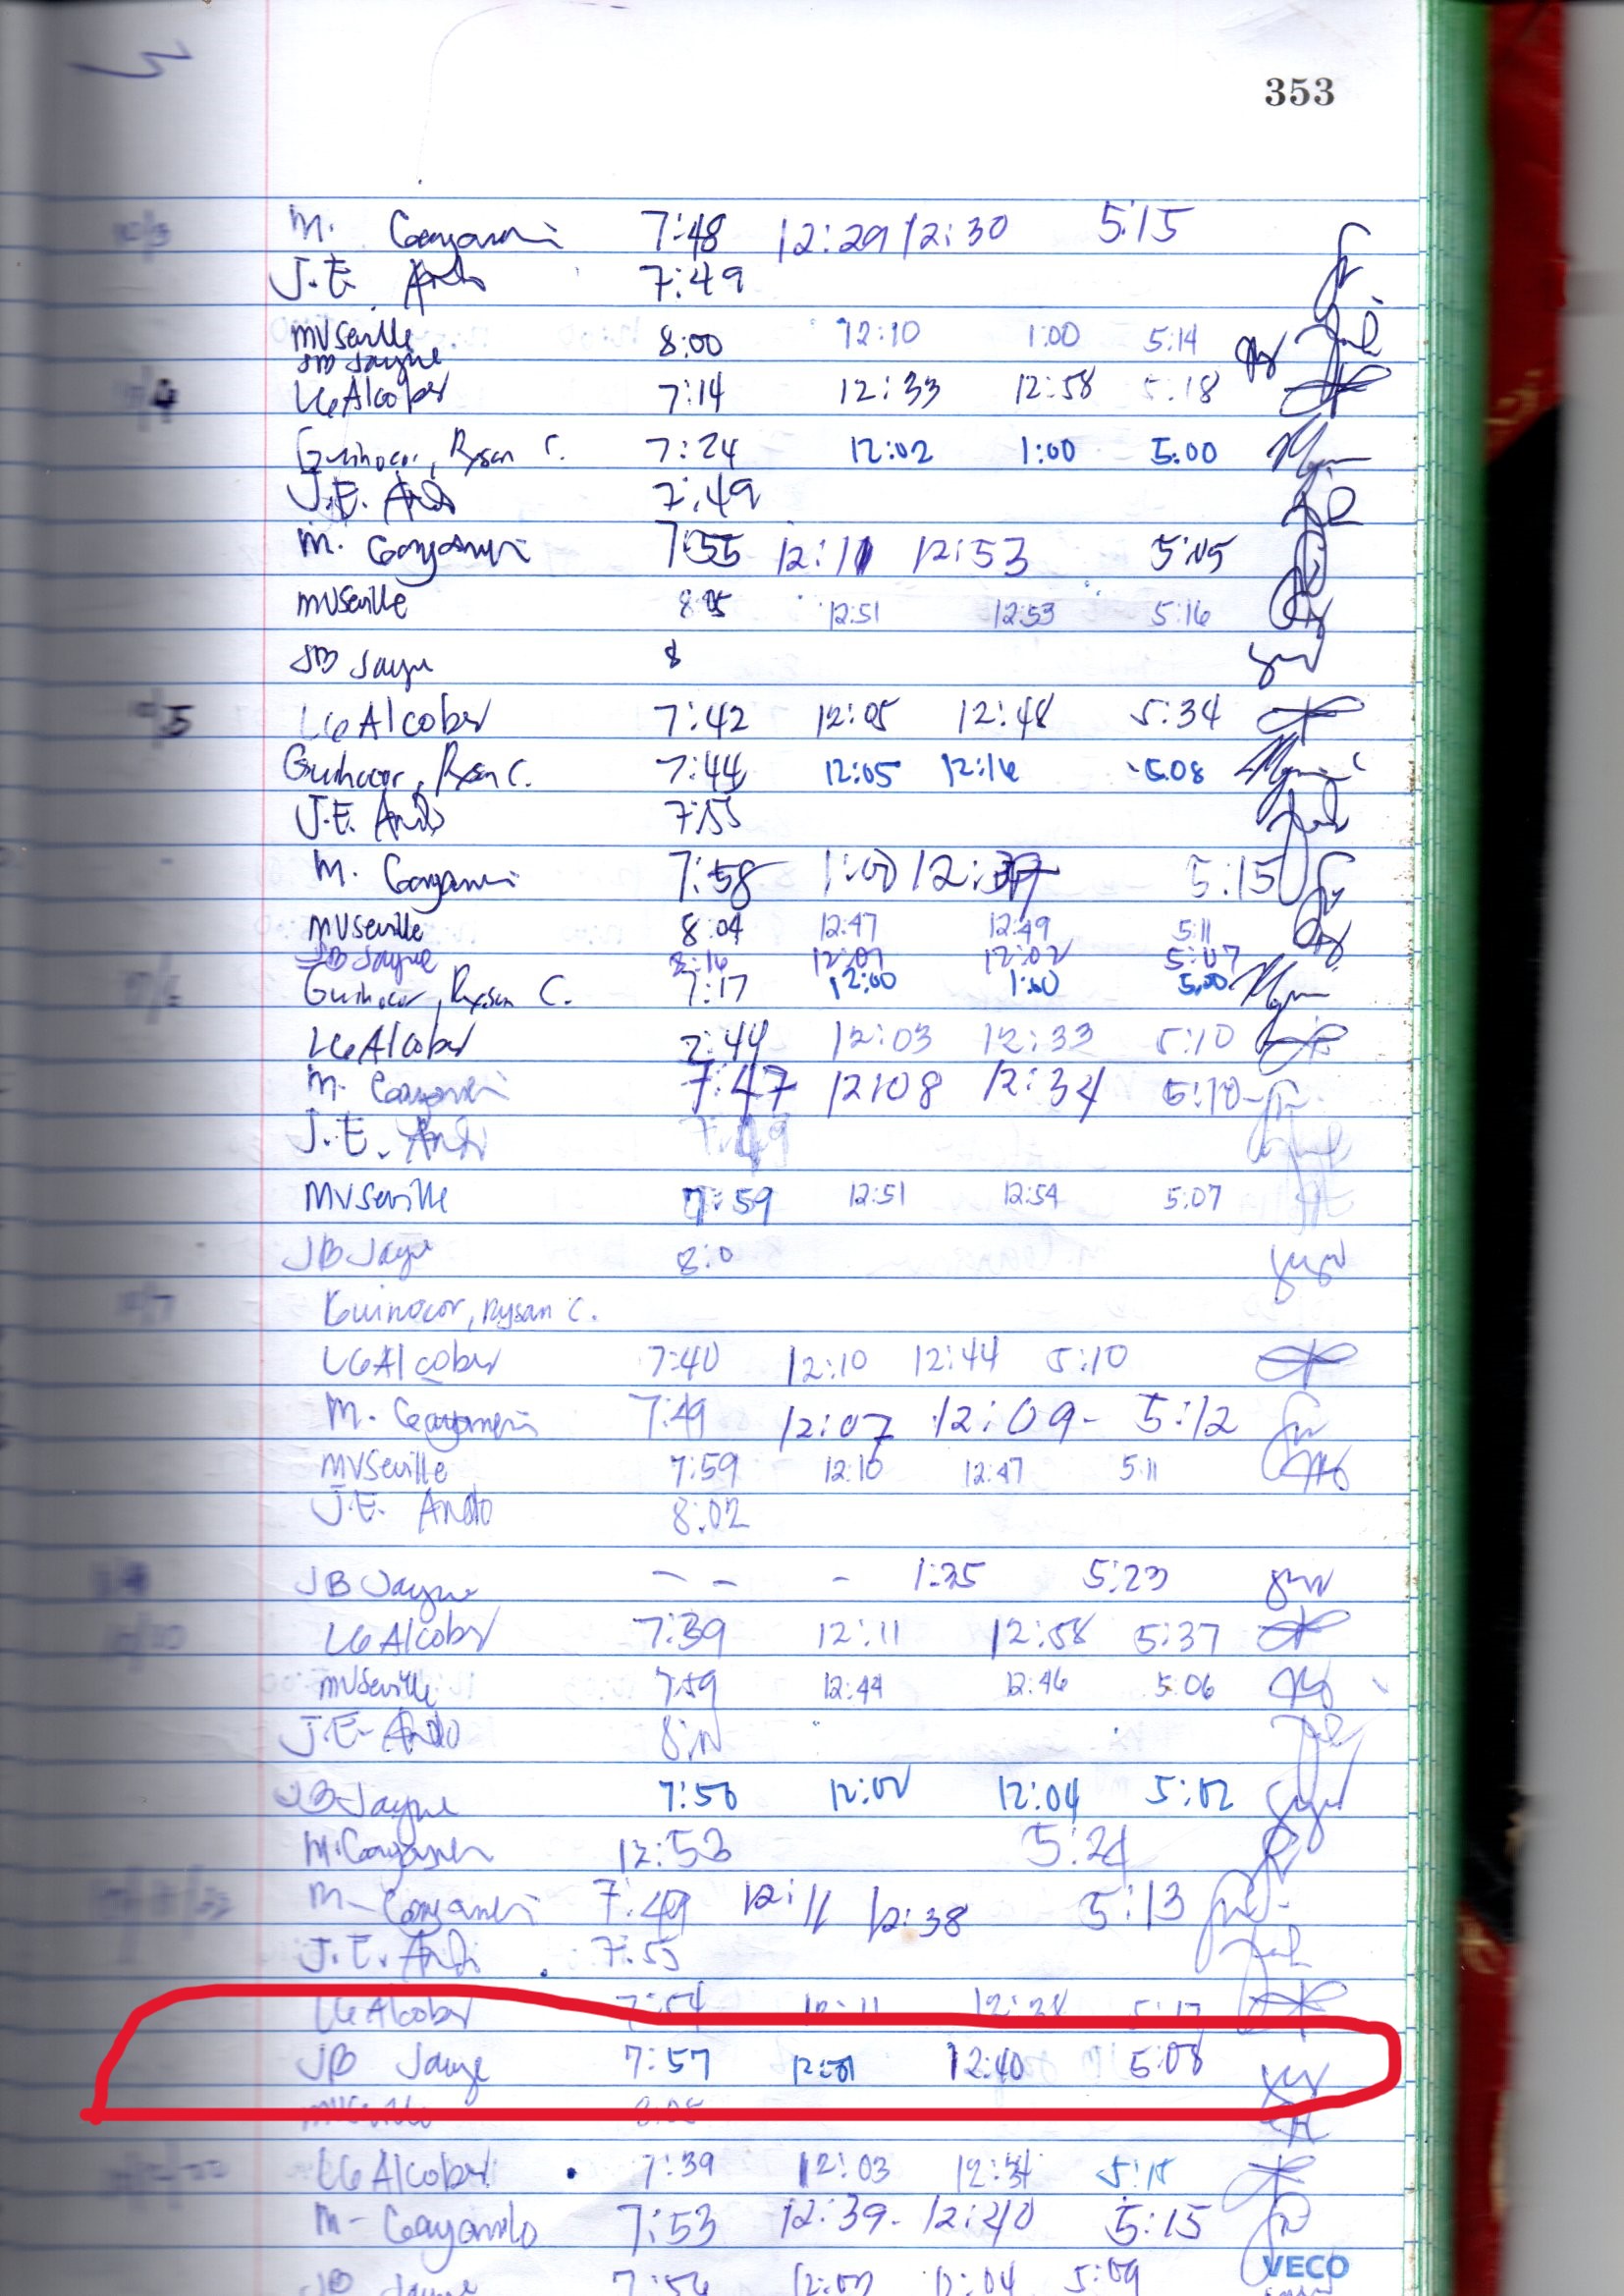 353
10/3 M. 7:48 12:29 12:30 5:15
J.E. Ando 7:49
MVSeville 8:00 12:10 1:00 5:14
JB Jayme
10/4 LGAlcober 7:14 12:33 12:58 5:18
Guinocor, Rysan C. 7:24 12:02 1:00 5:00
J.E. Ando 7:49
M. 7:55 12:11 12:53 5:05
MVSeville 12:51 12:53 5:16
JB Jayme 8
10/5 LGAlcober 7:42 12:05 12:48 5:34
Guinocor, Rysan C. 7:44 12:05 12:16 5:08
J.E. Ando 7:55
M. 7:58 1:00 5:15
MVSeville 8:04 12:47 12:49 5:11
JB Jayme 8:16 12:01 12:02 5:07
Guinocor, Rysan C. 7:17 12:00 1:00 5:00
LGAlcober 7:44 12:03 12:33 5:10
M. 7:47 12:08 12:34 5:10
J.E. Ando 7:49
MVSeville 7:59 12:51 12:54 5:07
JB Jayme 8:0
10/7 Guinocor, Rysan C.
LGAlcober 7:40 12:10 12:44 5:10
M. 7:49 12:07 12:09- 5:12
MVSeville 7:59 12:10 12:47 5:11
J.E. Ando 8:02
JB Jayme - - - 1:35 5:23
10/10 LGAlcober 7:39 12:11 12:58 5:37
MVSeville 7:59 12:44 12:46 5:06
J.E. Ando
JB Jayme 7:50 12:02 12:04 5:02
M. 12:53 5:24
M- 7:49 12:11 12:38 5:13
J.E. Ando 7:55
LGAlcober 7:54 12:11 5:17
JB Jayme 7:57 12:01 12:40 5:08
MVSeville
LGAlcober 7:39 12:03 12:34 5:15
M- 7:53 12:39- 12:40 5:15
JB Jayme 7:56 12:00 12:04 5:09
VECO